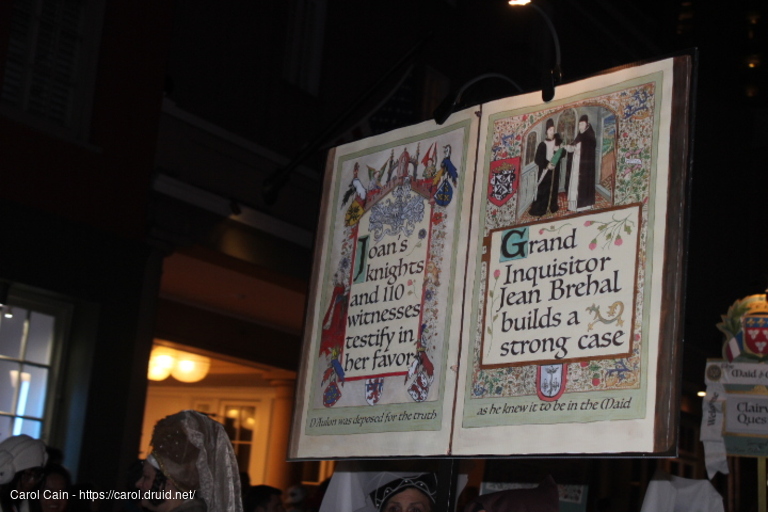 Joan's
knights
and 110
witnesses
testify in
her favor
D'Aulon was deposed for the truth
Grand
Inquisitor
Jean Brehal
builds a
strong case
as he knew it to be in the Maid
Maid &
Ques
Carol Cain - https://carol.druid.net/